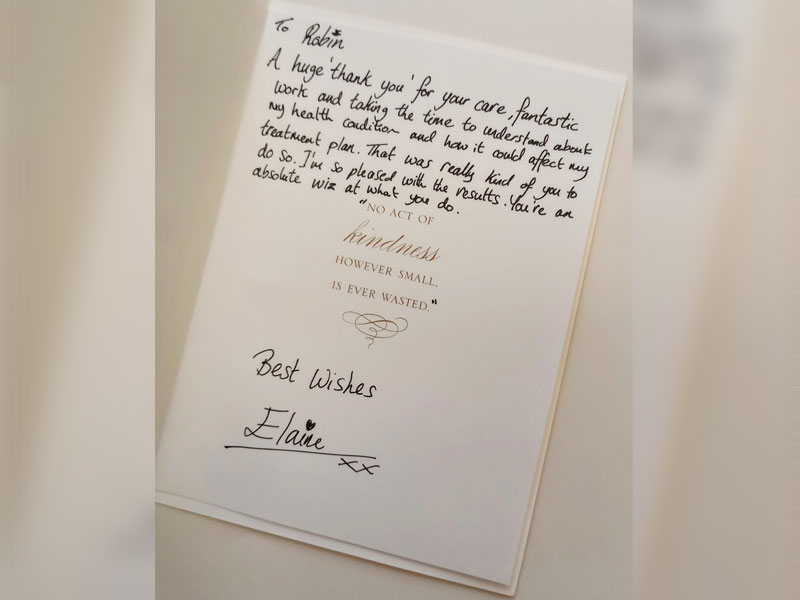 To Robin
A huge 'thank you' for your care, fantastic
work and taking the time to understand about
my health condition and how it could affect my
treatment plan. That was really kind of you to
do so. I'm so pleased with the results. You're an
absolute wiz at what you do.
"NO ACT OF
kindness
HOWEVER SMALL,
IS EVER WASTED."
Best Wishes
Elaine
xx